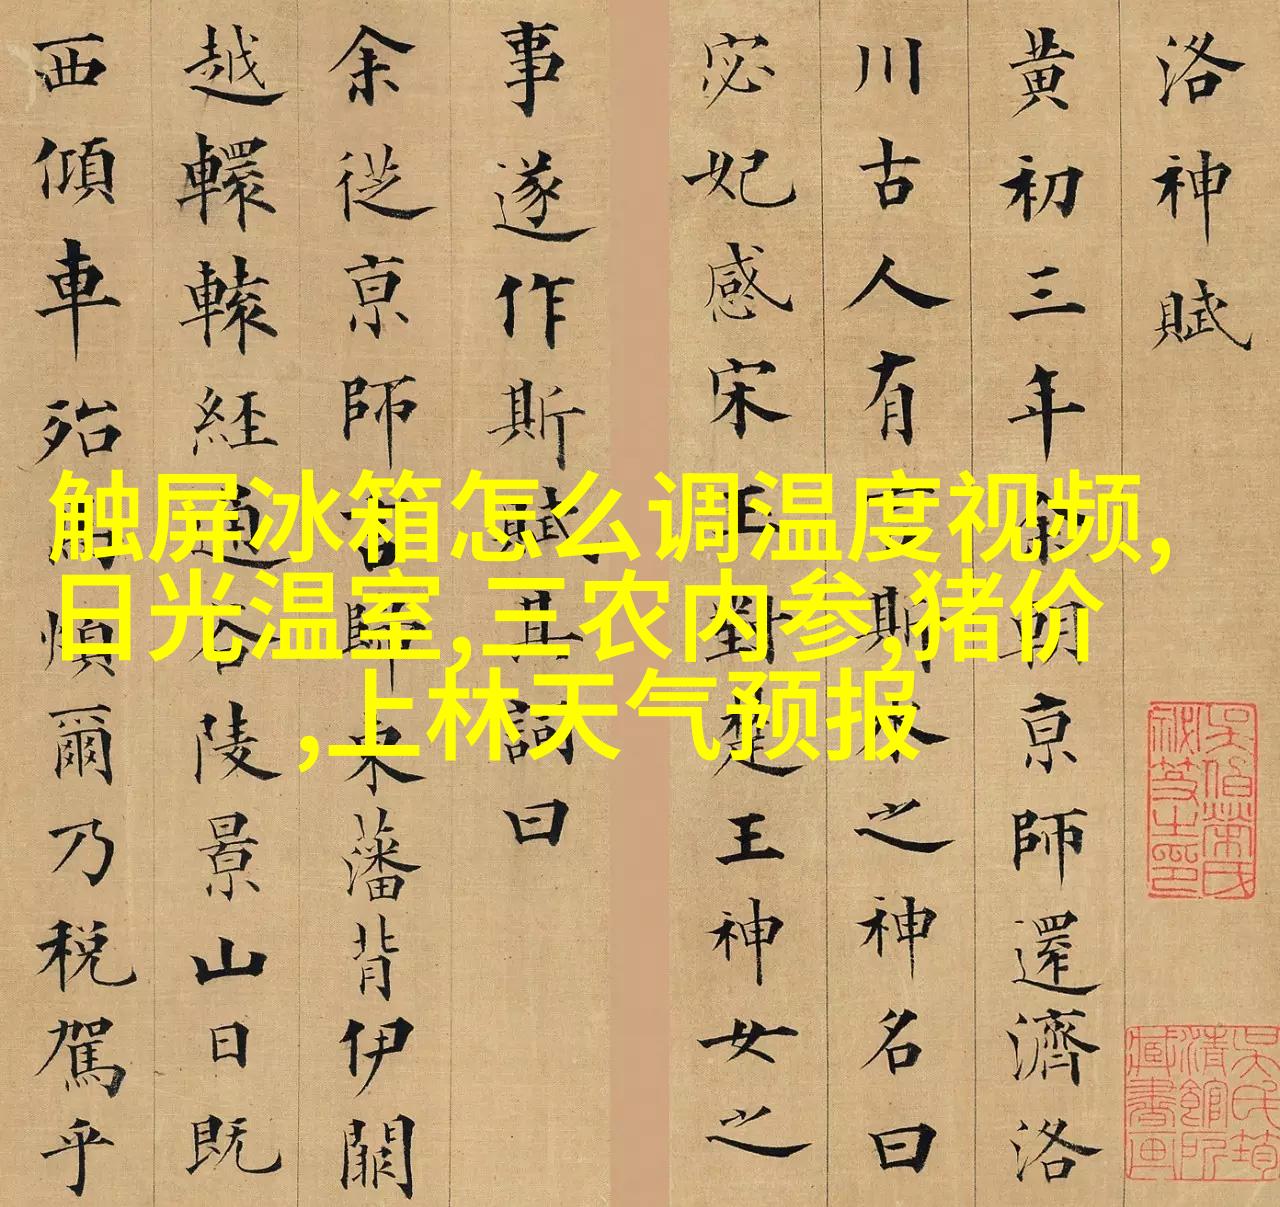 洛神賦
黄初三年余朝亰師還濟洛
川古人有言斯水之神名曰
宓妃感宋玉對楚王神女之
事遂作斯賦其詞曰
余從亰師言歸東藩背伊闕
越轘轅経通谷陵景山日既
西傾車殆馬煩爾乃税駕乎
触屏冰箱怎么调温度视频,
日光温室,三农内参,猪价
,上林天气预报
吳氏筠清館所藏書画